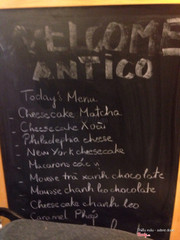 WELCOME
ANTICO
Today's Menu
- Cheesecake Matcha
- Cheesecake Xoài
- Philadelphia cheese
- New York cheesecake
- Macarons các
- Mousse trà xanh chocolate
- Mousse chanh leo chocolate
- Cheesecake chanh leo
- Caramel Pháp